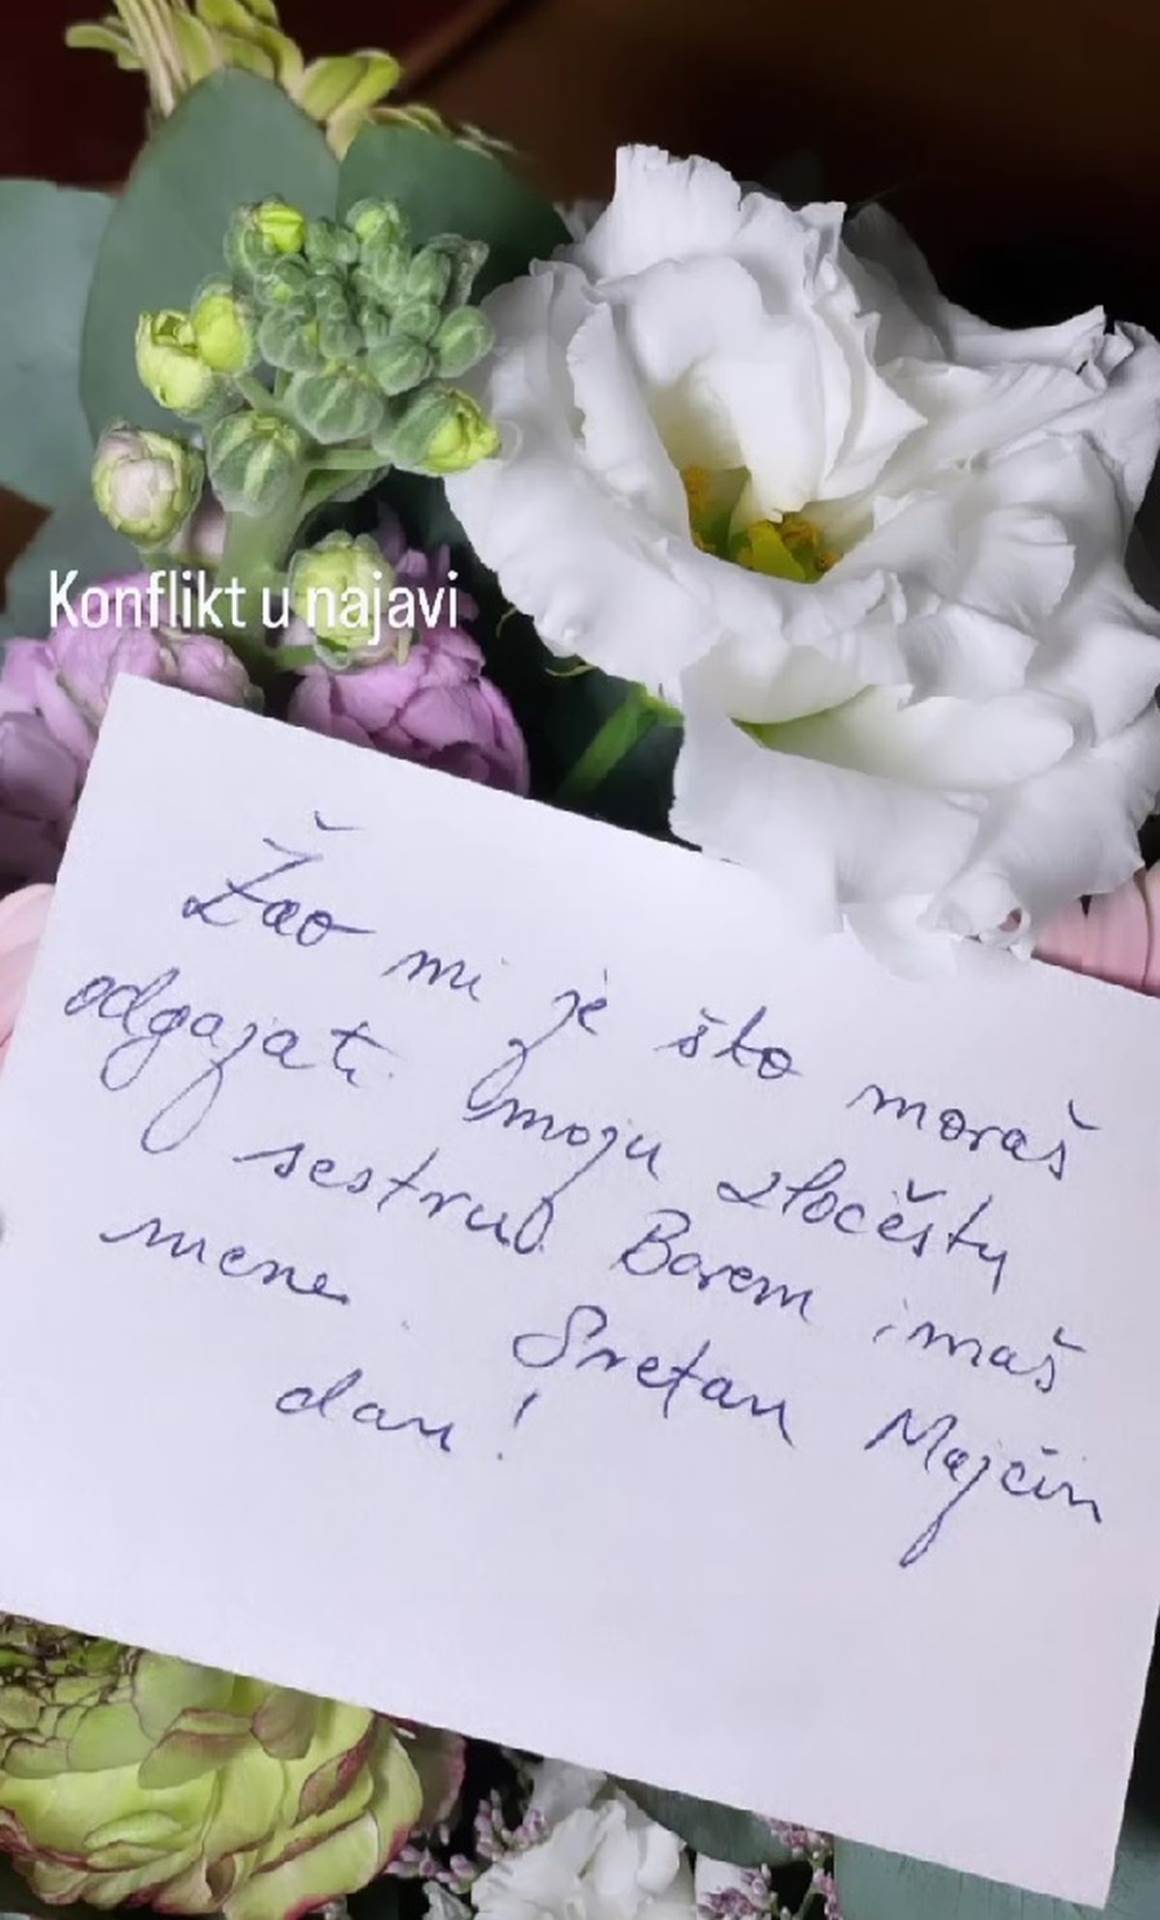 Konflikt u najavi
Žao mi je što moraš
odgajati moju zločestu
sestru. Barem imaš
mene. Sretan Majčin
dan!